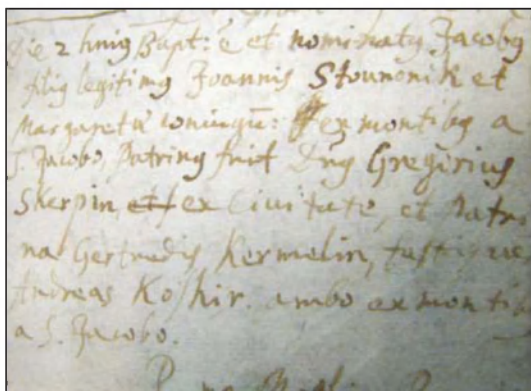 Die 2 huiq Bapt: ē et nominatq Jacobq
filiq legitimq Joannis Stounonik et
Margaretæ coniugū: ex montibq a
S. Jacobo, Patrinq fuit Dnq Gregorius
Skerpin, et ex Ciuitate, et Patri-
na Gertrudis Kermelin, testis
Andreas Koshir. ambo ex montib
a S. Jacobo.